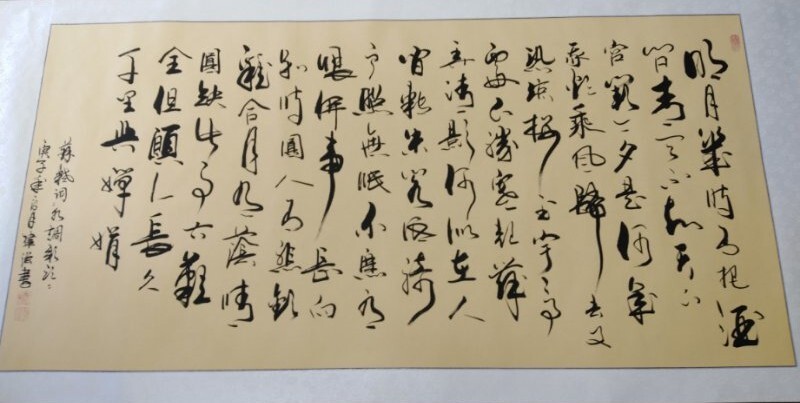 明月幾時有把酒
問青天不知天上
宮闕今夕是何年
我欲乘風歸去又
恐瓊樓玉宇高
處不勝寒起舞
弄清影何似在人
間轉朱閣低綺
戶照無眠不應有
恨何事長向
別時圓人有悲歡
離合月有陰晴
圓缺此事古難
全但願人長久
千里共嬋娟
蘇軾詞水調歌頭
庚子年六月